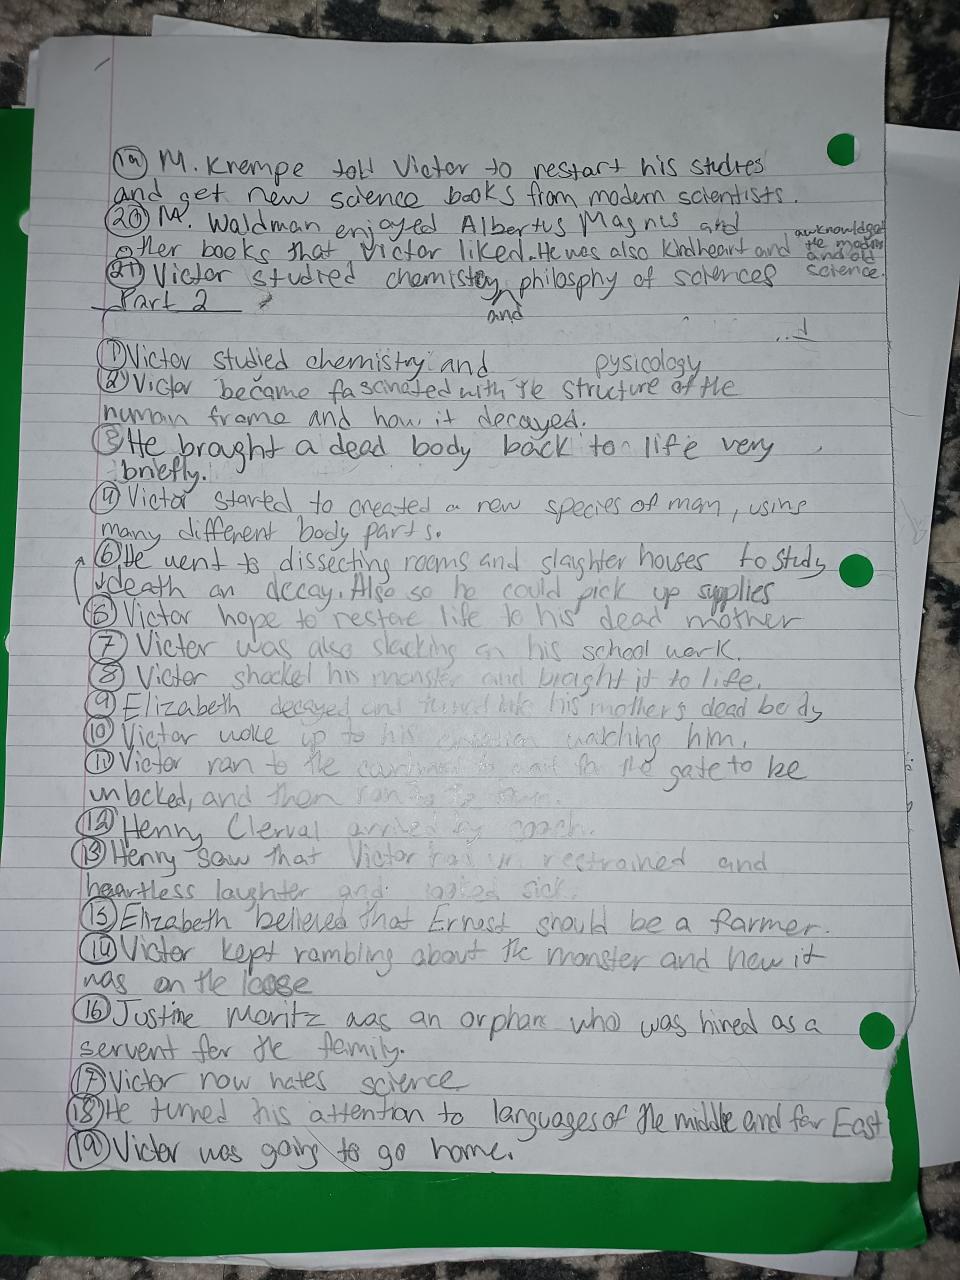 19 M. Krempe told Victor to restart his studies
and get new science books from modern scientists.
20 M. Waldman enjoyed Albertus Magnus and
other books that Victor liked. He was also Kindheart and awknowledged the modern and old science.
21 Victor studied chemistry and philosphy of sciences
Part 2
1 Victor studied chemistry and pysicology
2 Victor became fascinated with the structure of the
human frame and how it decayed.
3 He brought a dead body back to life very
briefly.
4 Victor started to created a new species of man, using
many different body parts.
6 He went to dissecting rooms and slaghter houses to study
death an decay. Also so he could pick up supplies
5 Victor hope to restore life to his dead mother
7 Victor was also slacking on his school work.
8 Victor shocked his monster and braght it to life.
9 Elizabeth decayed and turned into his mothers dead body
10 Victor woke up to his creation watching him.
11 Victor ran to the for the gate to be
unlocked, and then ran
12 Henry Clerval arrived by coach.
13 Henry saw that Victor restrained and
heartless laughter and looked sick.
15 Elizabeth believed that Ernest should be a farmer.
14 Victor kept rambling about the monster and how it
was on the loose
16 Justine Moritz was an orphan who was hired as a
servent for the family.
17 Victor now hates science
18 He turned his attention to languages of the middle and far East
19 Victor was going to go home.